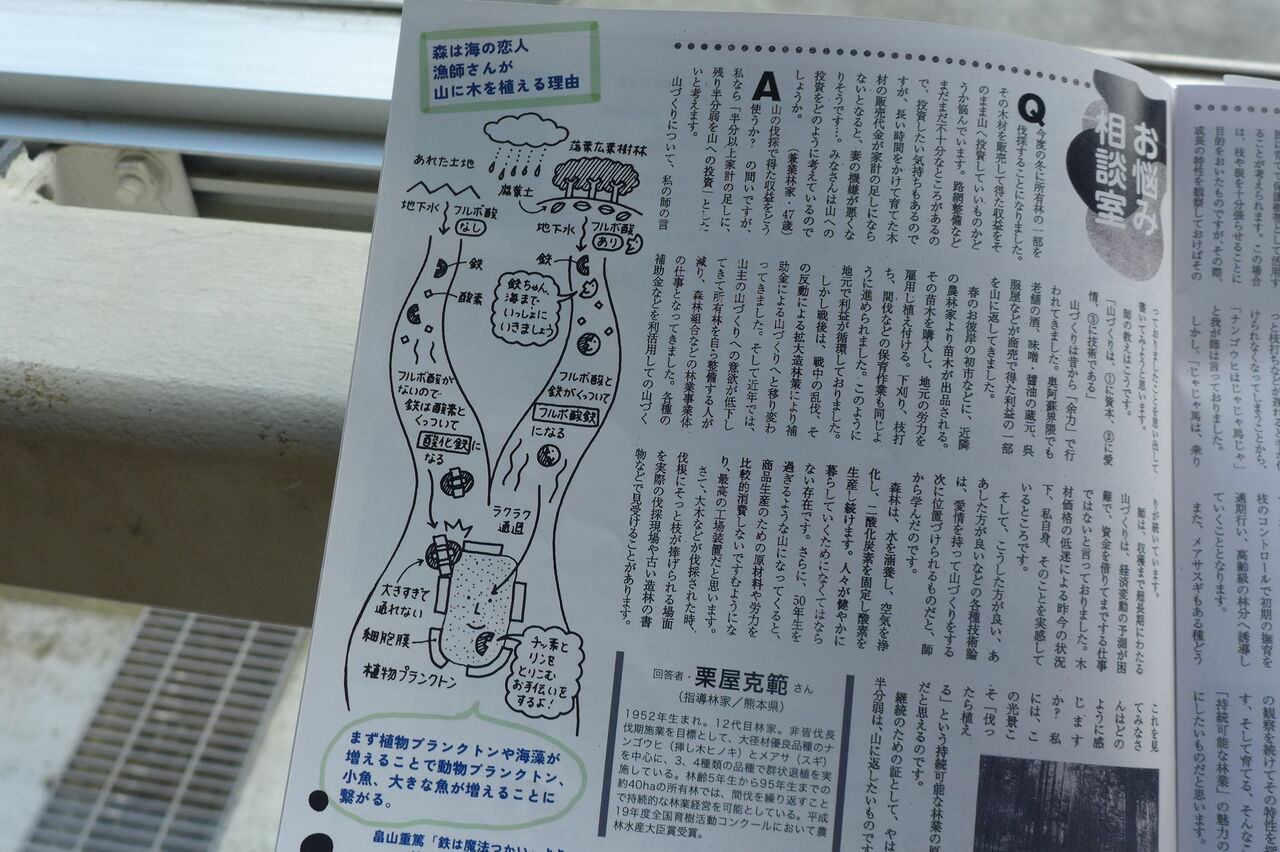 森は海の恋人
漁師さんが
山に木を植える理由
あれた土地
落葉広葉樹林
腐葉土
地下水
フルボ酸
なし
地下水
フルボ酸
あり
鉄
酸素
鉄
鉄ちゃん、
海まで
いっしょに
いきましょう
フルボ酸が
ないので
鉄は酸素と
くっついて
酸化鉄に
なる
フルボ酸と
鉄がくっついて
フルボ酸鉄
になる
ラクラク
通過
大きすぎて
通れない
細胞膜
植物プランクトン
チッ素と
リンを
とりこむ
お手伝いを
するよ!
まず植物プランクトンや海藻が
増えることで動物プランクトン、
小魚、大きな魚が増えることに
繋がる。
畠山重篤「鉄は魔法つかい」より
お悩み
相談室
Q
今度の冬に所有林の一部を
伐採することになりました。
その木材を販売して得た収益をそ
のまま山へ投資していいものかど
うか悩んでいます。路網整備など
まだまだ不十分なところがあるの
で、投資したい気持ちもあるので
すが、長い時間をかけて育てた木
材の販売代金が家計の足しになら
ないとなると、妻の機嫌が悪くな
りそうです…。みなさんは山への
投資をどのように考えているので
しょうか。
(兼業林家・47歳)
A
山の伐採で得た収益をどう
使うか?の問いですが、
私なら「半分以上家計の足しに、
残り半分弱を山への投資」とした
いと考えます。
山づくりについて、私の師の言
っておりましたことを思い出して
書いてみようと思います。
師の教えはこうです。
「山づくりは、①に資本、②に愛
情、③に技術である」
山づくりは昔から「余力」で行
われてきました。奥阿蘇界隈でも
老舗の酒、味噌・醤油の蔵元、呉
服屋などが商売で得た利益の一部
を山に返してきました。
春のお彼岸の初市などに、近隣
の農林家より苗木が出品される。
その苗木を購入し、地元の労力を
雇用し植え付ける。下刈り、枝打
ち、間伐などの保育作業も同じよ
うに進められました。このように
地元で利益が循環しておりました。
しかし戦後は、戦中の乱伐、そ
の反動による拡大造林策により補
助金による山づくりへと移り変わ
ってきました。そして近年では、
山主の山づくりへの意欲が低下し
てきて所有林を自ら整備する人が
減り、森林組合などの林業事業体
の仕事となってきました。各種の
補助金などを利活用しての山づく
りが続いています。
師は、収穫まで超長期にわたる
山づくりは、経済変動の予測が困
難で、資金を借りてまでする仕事
ではないと言っておりました。木
材価格の低迷による昨今の状況
下、私自身、そのことを実感して
いるところです。
そして、こうした方が良い、あ
あした方が良いなどの各種技術論
は、愛情を持って山づくりをする
次に位置づけられるものだと、師
から学んだのです。
森林は、水を涵養し、空気を浄
化し、二酸化炭素を固定し酸素を
生産し続けます。人々が健やかに
暮らしていくためになくてはなら
ない存在です。さらに、50年生を
過ぎるような山になってくると、
商品生産のための原材料や労力を
比較的消費しないですむようにな
り、最高の工場装置だと思います。
さて、大木などが伐採された時、
伐根にそっと枝が捧げられる場面
を実際の伐採現場や古い造林の書
物などで見受けることがあります。
これを見
てみなさ
んはどの
ように感
じます
か?私
には、こ
の光景こ
そ「伐っ
たら植え
る」という持続可能な林業の原
だと思えるのです。
継続のための証として、やは
半分弱は、山に返したいものです
回答者・栗屋克範さん
(指導林家/熊本県)
1952年生まれ。12代目林家。非皆伐長
伐期施業を目標として、大径材優良品種のナ
ンゴウヒ(挿し木ヒノキ)とメアサ(スギ)
を中心に、3、4種類の品種で群状退植を実
施している。林齢5年生から95年生までの
約40haの所有林では、間伐を繰り返すこと
で持続的な林業経営を可能としている。平成
19年度全国育樹活動コンクールにおいて農
林水産大臣賞受賞。
ることが考えられます。この場合
は、枝や根を十分張らせることに
目的をおいたものですが、その際、
成長の特性を観察しておけばその
けられなくなってしまうことから、
「ナンゴウヒはじゃじゃ馬じゃ」
と我が師は言っておりました。
しかし、「じゃじゃ馬は、乗り
枝のコントロールで初期の撫育を
適期行い、高齢級の林分へ誘導し
ていくこととなります。
また、メアサスギもある種どう
の観察を続けてその特性を
す、そして育てる、そんな
「持続可能な林業」の魅力の
にしたいものだと思います。